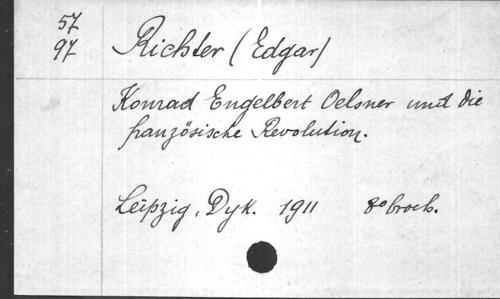 57
97
Richter (Edgar)
Konrad Engelbert Oelsner und die
französische Revolution.
Leipzig, Dyk. 1911 8° broch.